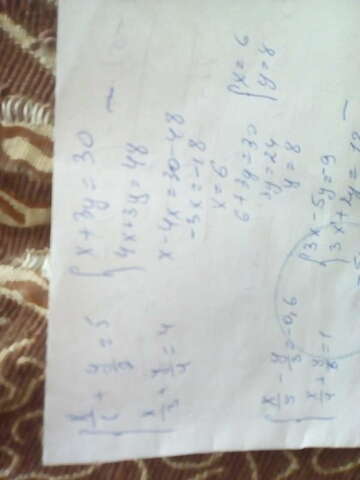 x/6 + y/2 = 5
x/3 + y/4 = 4
x + 3y = 30
4x + 3y = 48
x - 4x = 30 - 48
-3x = -18
x = 6
6 + 3y = 30
3y = 24
y = 8
x = 6
y = 8
x/5 - y/3 = -0,6
x/4 + y/6 = 1
3x - 5y = -9
3x + 2y = 12